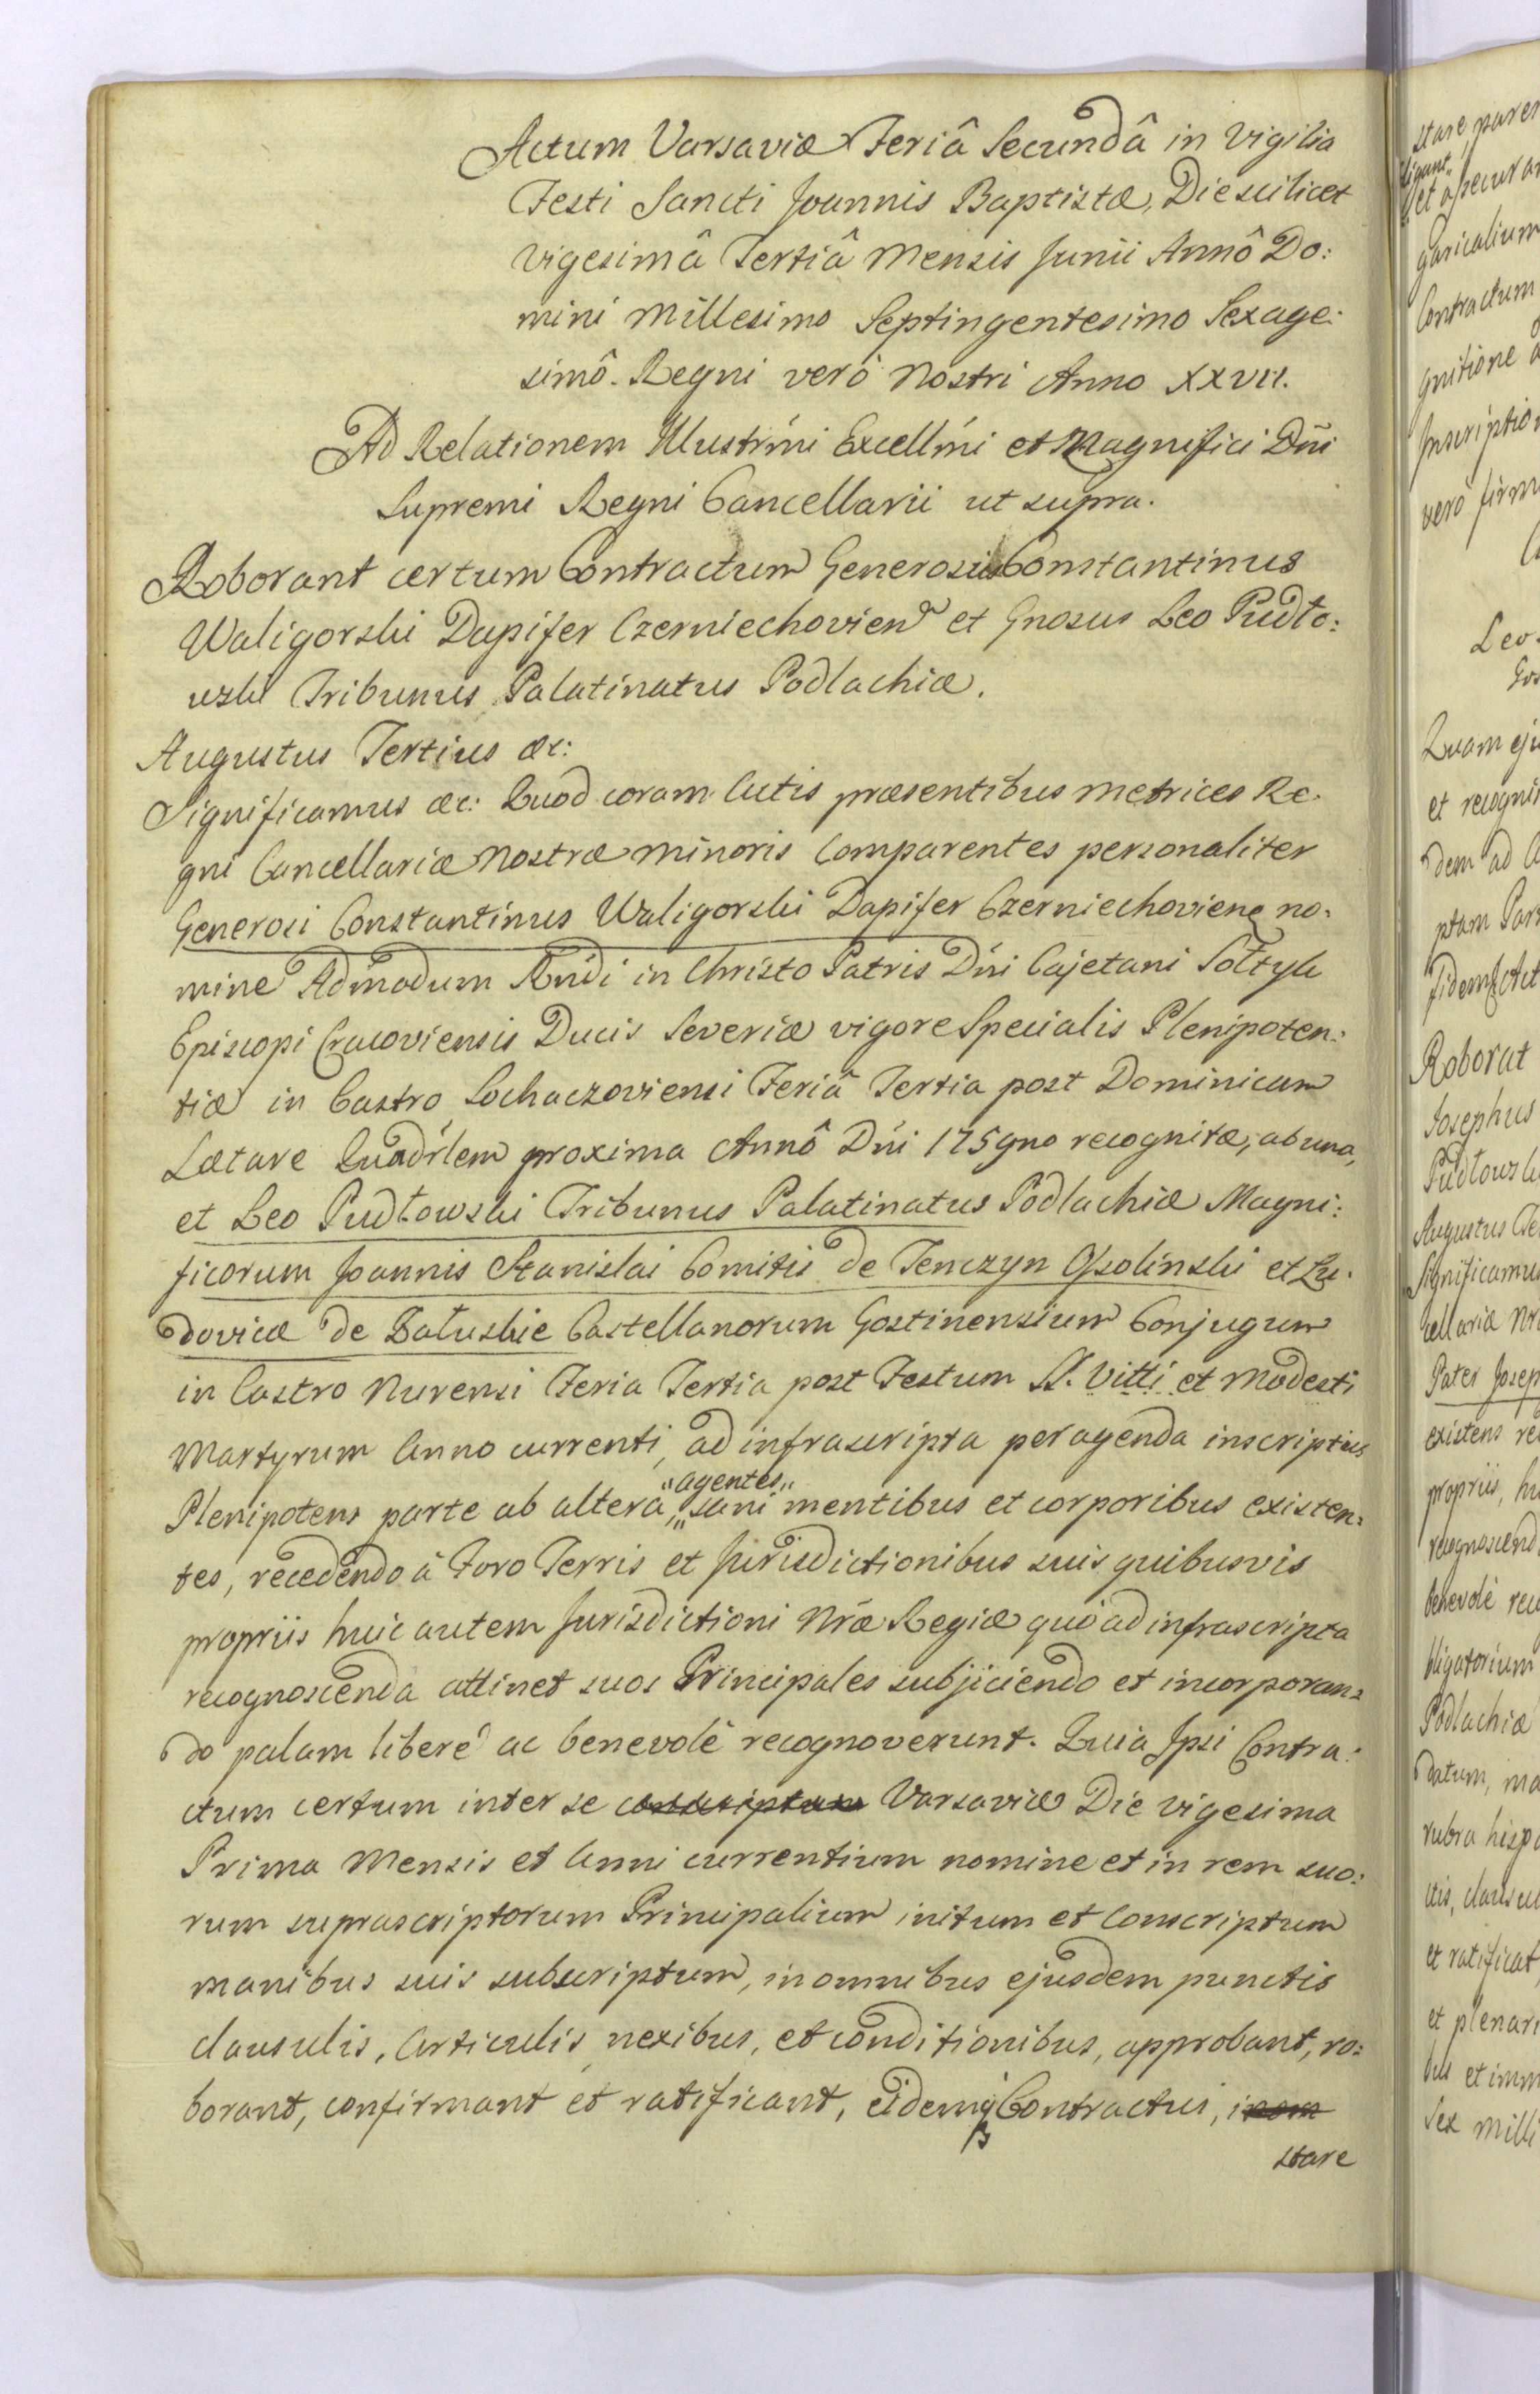 Actum Varsaviæ Feriâ Secundâ in Vigilia
Festi Sancti Joannis Baptistæ, Die scilicet
Vigesimâ Tertiâ Mensis Junii Annô Do:
mini Millesimo Septingentesimo Sexage:
simô. Regni verò Nostri Anno XXVII.
Ad Relationem Illustrmi Excellmi et Magnifici Dni
Supremi Regni Cancellarii ut supra.
Roborant certum Contractum Generosus Constantinus
Waligorski Dapifer Czerniechovien et Gnosus Leo Pudło:
wski Tribunus Palatinatus Podlachiæ.
Augustus Tertius &c:
Significamus &c: Quod coram Actis præsentibus Metrices Re:
gni Cancellariæ Nostræ Minoris Comparentes personaliter
Generosi Constantinus Waligorski Dapifer Czerniechoviens no:
mine Admodum Rndi in Christo Patris Dni Cajetani Sołtyk
Episcopi Cracoviensis Ducis Severiæ vigore Specialis Plenipoten:
tiæ in Castro Sochaczoviensi Feriâ Tertia post Dominicam
Lætare Quadrlem proxima Annô Dni 1759no recognitæ, ab una,
et Leo Pudłowski Tribunus Palatinatus Podlachiæ Magni:
ficorum Joannis Stanislai Comitis de Tenczyn Ossolinski et Lu:
dovicæ de Załuskie Castellanorum Gostinensium Conjugum
in Castro Nurensi Feria Tertia post Festum SS. Vitti et Modesti
Martyrum Anno currenti, ad infrascripta peragenda inscriptus
Plenipotens parte ab altera, "agentes" sani mentibus et corporibus existen:
tes, recedendo à Foro Terris et Jurisdictionibus suis quibusvis
propriis huic autem Jurisdictioni Nræ Regiæ quò ad infrascripta
recognoscenda attinet suos Principales subjiciendo et incorporan:
do palam liberè ac benevolè recognoverunt. Quia Ipsi Contra:
ctum certum inter se conscriptum Varsaviæ Die vigesima
Prima Mensis et Anni currentium nomine et in rem suo:
rum suprascriptorum Principalium initum et Conscriptum
manibus suis subscriptum, in omnibus ejusdem punctis
clausulis, Articulis nexibus, et conditionibus, approbant, ro:
borant, confirmant et ratificant, eidemq3 Contractui,
stare
stare
ligant
et assecurant
garicalium
Contractum
gnitione
Inscription
verò firm
Leo
Quam eju
et recogni
dem ad
ptam Par
fidem Act
Roborat
Josephus
Pudłowski
Augustus
Significamus
cellariæ
Pater Josep
existens
propriis, hu
recognoscend
benevolè
bligatorium
Podlachiæ
datum,
rubra hisp
ctis, clausul
et ratificat
et plenari
bus et imm
sex Milli